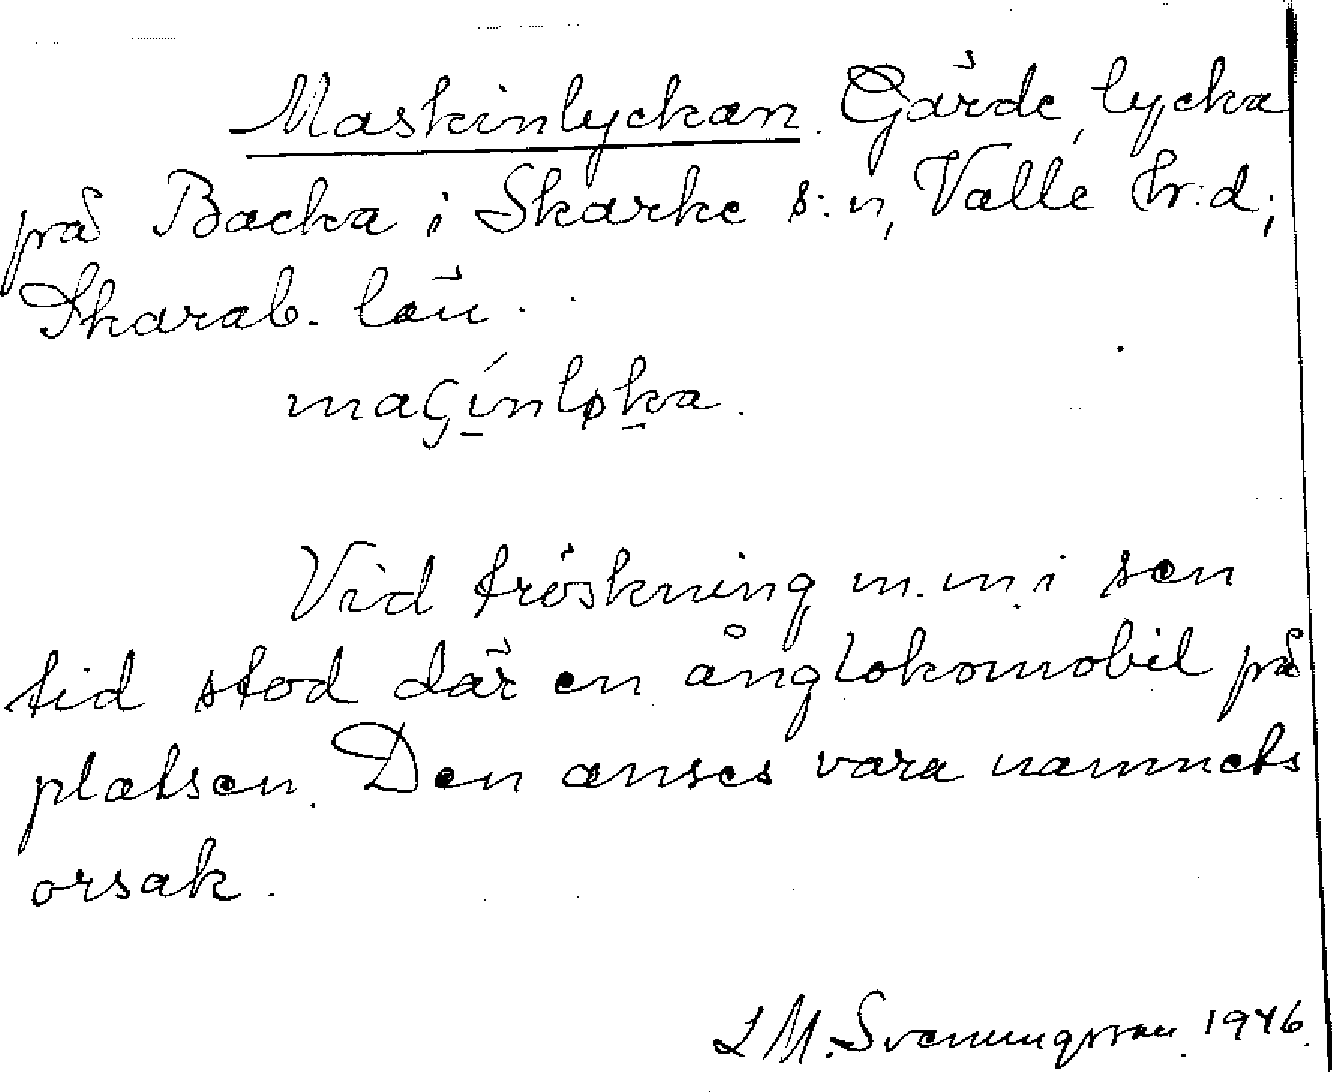 Maskinlyckan. Gärde, lycka
på Backa i Skärke s:n, Valle hr:d;
Skarab. län.
Vid tröskning m.m. i sen
tid stod där en ånglokomobil på
platsen. Den anses vara namnets
orsak.
L M. Svenungsson. 1946.